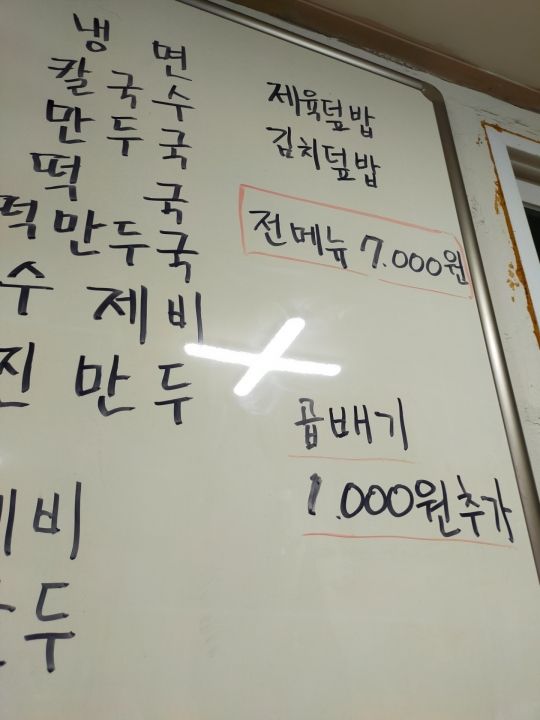 냉 면
칼 국 수
만 두 국
떡 국
떡 만 두 국
수 제 비
진 만 두
제 비
두
제육덮밥
김치덮밥
전메뉴 7.000원
곱배기
1.000원추가